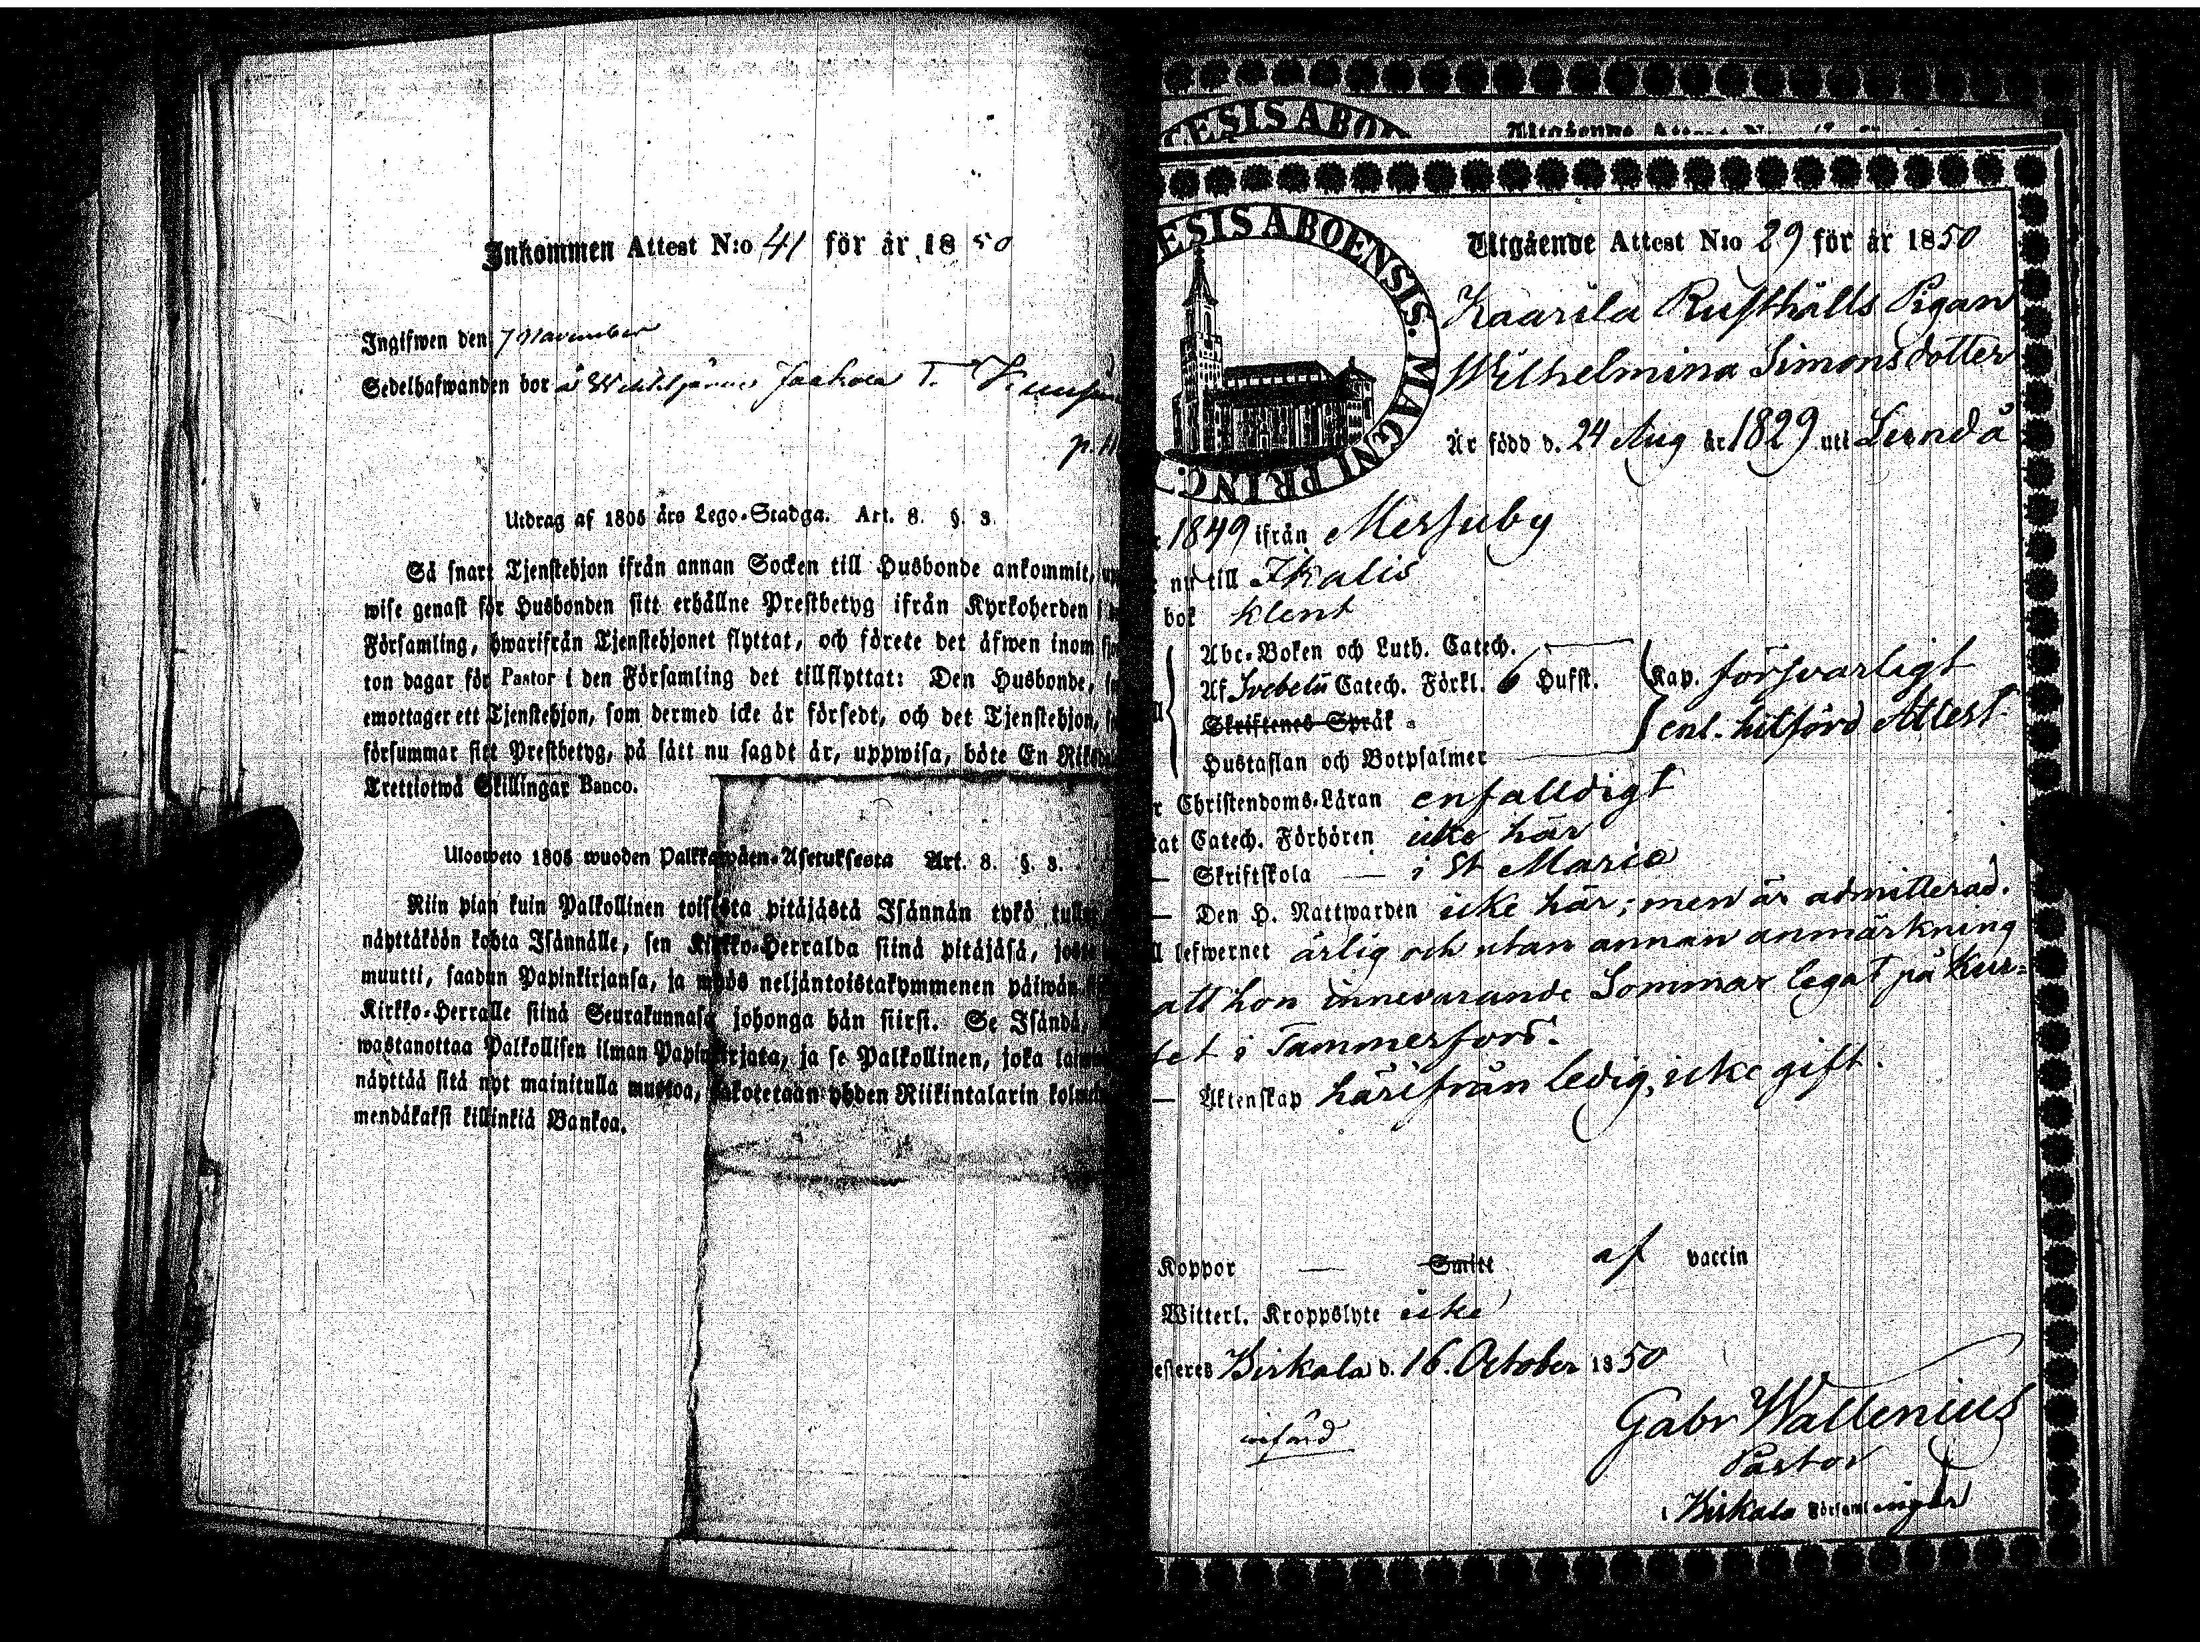 Inkommen Attest N:o 41 för år 1850
Ingifwen den 7 November
Sedelhafwanden bor å Jaakola T.
Utdrag af 1805 års Lego-Stadga. Art. 8. §. 3.
Så snart Tjenstehjon ifrån annan Socken till Husbonde ankommit,
wise genast för Husbonden sitt erhållne Prestbetyg ifrån Kyrkoherden i
Församling, hwarifrån Tjenstehjonet flyttat, och förete det äfwen inom
ton dagar för Pastor i den Församling det tillflyttat: Den Husbonde,
emottager ett Tjenstehjon, som dermed icke är försedt, och det Tjenstehjon,
försummar sitt Prestbetyg, på sätt nu sagdt är, uppwisa, böte En
Trettiotwå Skillingar Banco.
Ulosweto 1805 wuoden Palkkawäen-Asetuksesta Art. 8. §. 3.
Niin pian kuin Palkollinen toisesta pitäjästä Isännän tykö
näyttäköön kohta Isännälle, sen Kirkko-Herralda siinä pitäjäsä,
muutti, saadun Papinkirjansa, ja myös neljäntoistakymmenen päiwän
Kirkko-Herralle siinä Seurakunnasa johonga hän siirst. Se Isändä,
wastanottaa Palkollisen ilman Papinkirjata, ja se Palkollinen, joka
näyttää sitä nyt mainitulla muotoa, sakotetaan yhden Riikintalarin
mendäkaksi killinkiä Bankoa.
ESIS ABOENSIS. MAGNI PRINC.
Utgående Attest N:o 29 för år 1850
Kaarila Rusthålls Pigan
Wilhelmina Simonsdotter
Är född d. 24 Aug år 1829 uti
1849 ifrån Messuby
nu till Ikalis
bok klent
Abc-Boken och Luth. Catech.
Af Svebelii Catech. Förkl. 6 Hufst. Kap. försvarligt
Skriftenes Språk enl. hitförd Attest
Hustaflan och Botpsalmer
Christendoms-Läran enfalldigt
Catech. Förhören icke här
— Skriftskola — i St Marie
— Den H. Nattwarden icke här; men är admitterad.
lefwernet ärlig och utan annan anmärkning
att hon innevarande Sommar legat på Kur-
i Tammerfors.
— Äktenskap härifrån ledig, icke gift.
Koppor — Smitt af vaccin
Witterl. Kroppslyte icke
Birkala d. 16. October 1850
införd
Gabr Wallenius
Pastor
i Birkala